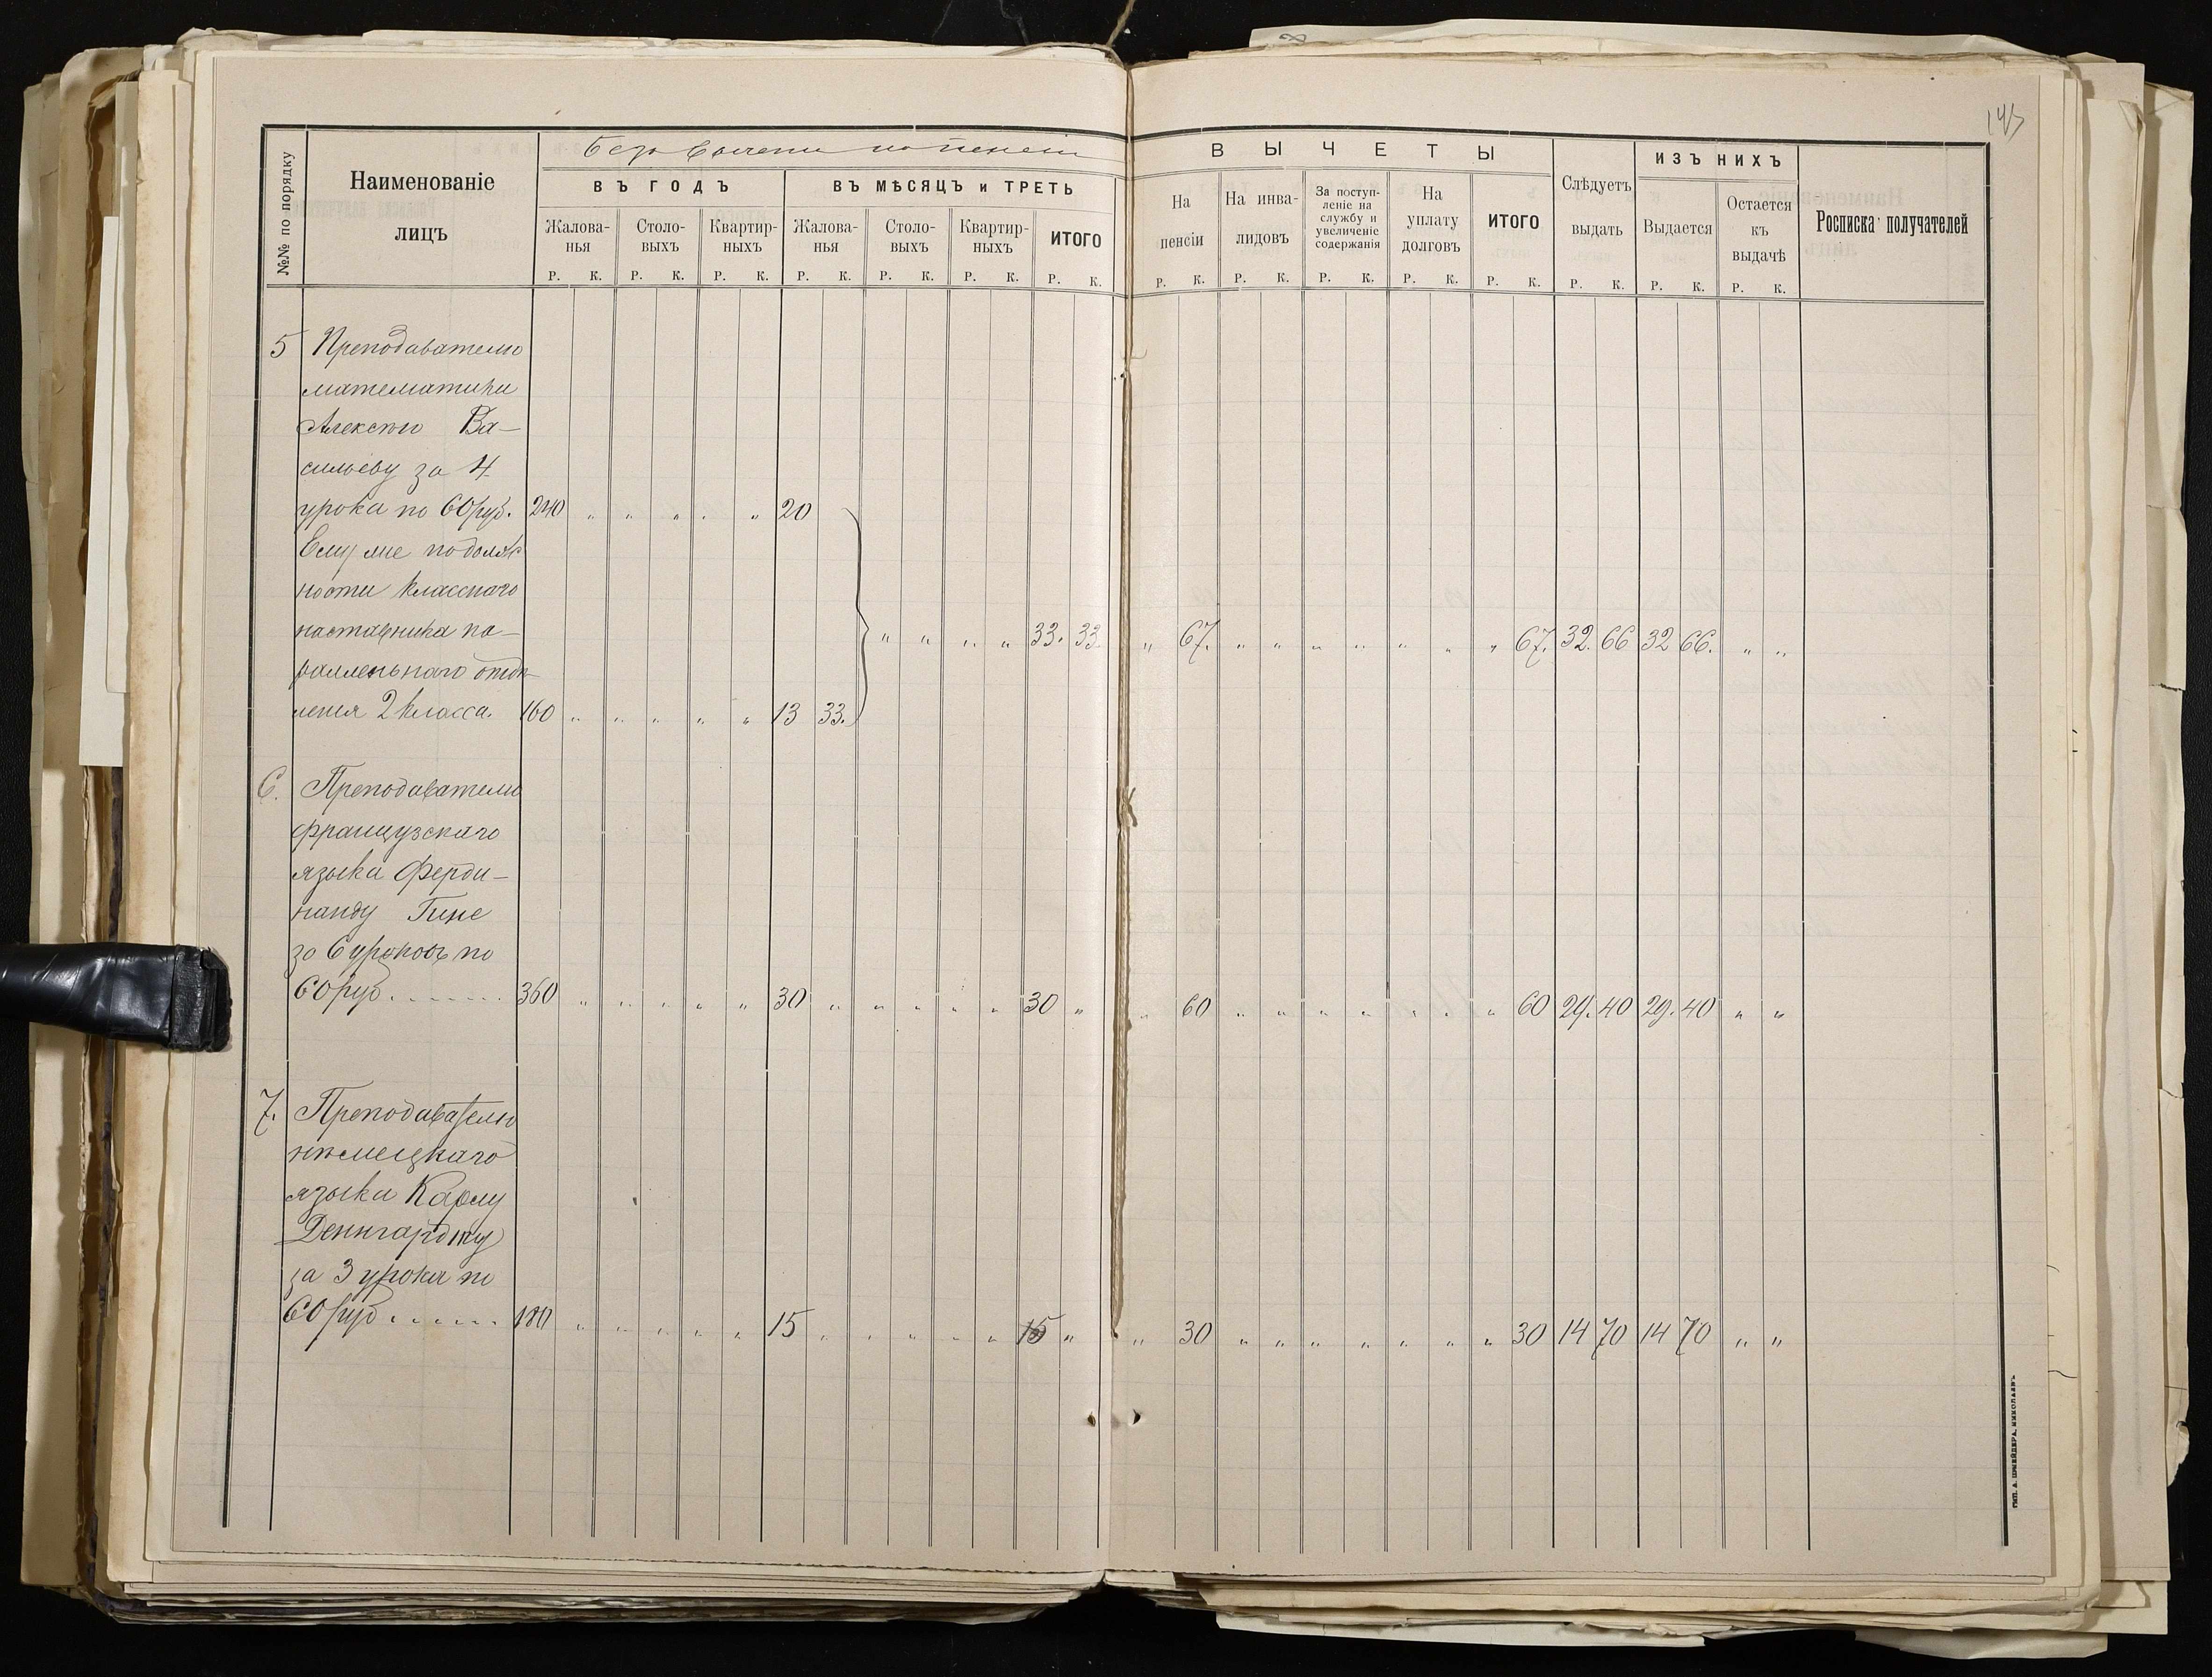 143
№№ по порядку
Наименованіе
лицъ
Безъ вычета на пенсіи
ВЪ ГОДЪ
ВЪ МѢСЯЦЪ и ТРЕТЬ
Жалова-
нья
Столо-
выхъ
Квартир-
ныхъ
Жалова-
нья
Столо-
выхъ
Квартир-
ныхъ
ИТОГО
Р. К. Р. К. Р. К. Р. К. Р. К. Р. К. Р. К.
ВЫЧЕТЫ
На
пенсіи
На инва-
лидовъ
За поступ-
леніе на
службу и
увеличеніе
содержанія
На
уплату
долговъ
ИТОГО
Слѣдуетъ
выдать
ИЗЪ НИХЪ
Выдается
Остается
къ
выдачѣ
Росписка получателей
Р. К. Р. К. Р. К. Р. К. Р. К. Р. К. Р. К. Р. К.
5 Преподавателю
математики
Алексѣю Ва-
сильеву за 4
урока по 60 руб. 240 " " " " " 20
Ему же по долж-
ности класснаго
наставника па-
раллельнаго отдѣ-
ленія 2 класса. 160 " " " " " 13 33.
" " " " 33. 33 " 67. " " " " " " " 67. 32. 66 32 66. " "
6. Преподавателю
французскаго
языка Ферди-
нанду Гине
за 6 уроковъ по
60 руб. 360 " " " " " 30 " " " " " 30 " " 60 " " " " " " " 60 29. 40 29. 40 " "
7. Преподавателю
нѣмецкаго
языка Карлу
Деннгардту
за 3 урока по
60 руб. 180 " " " " " 15 " " " " " 15 " " 30 " " " " " " " 30 14 70 14 70 " "
ТИП. А. ШНЕЙДЕРА, НИКОЛАЕВЪ